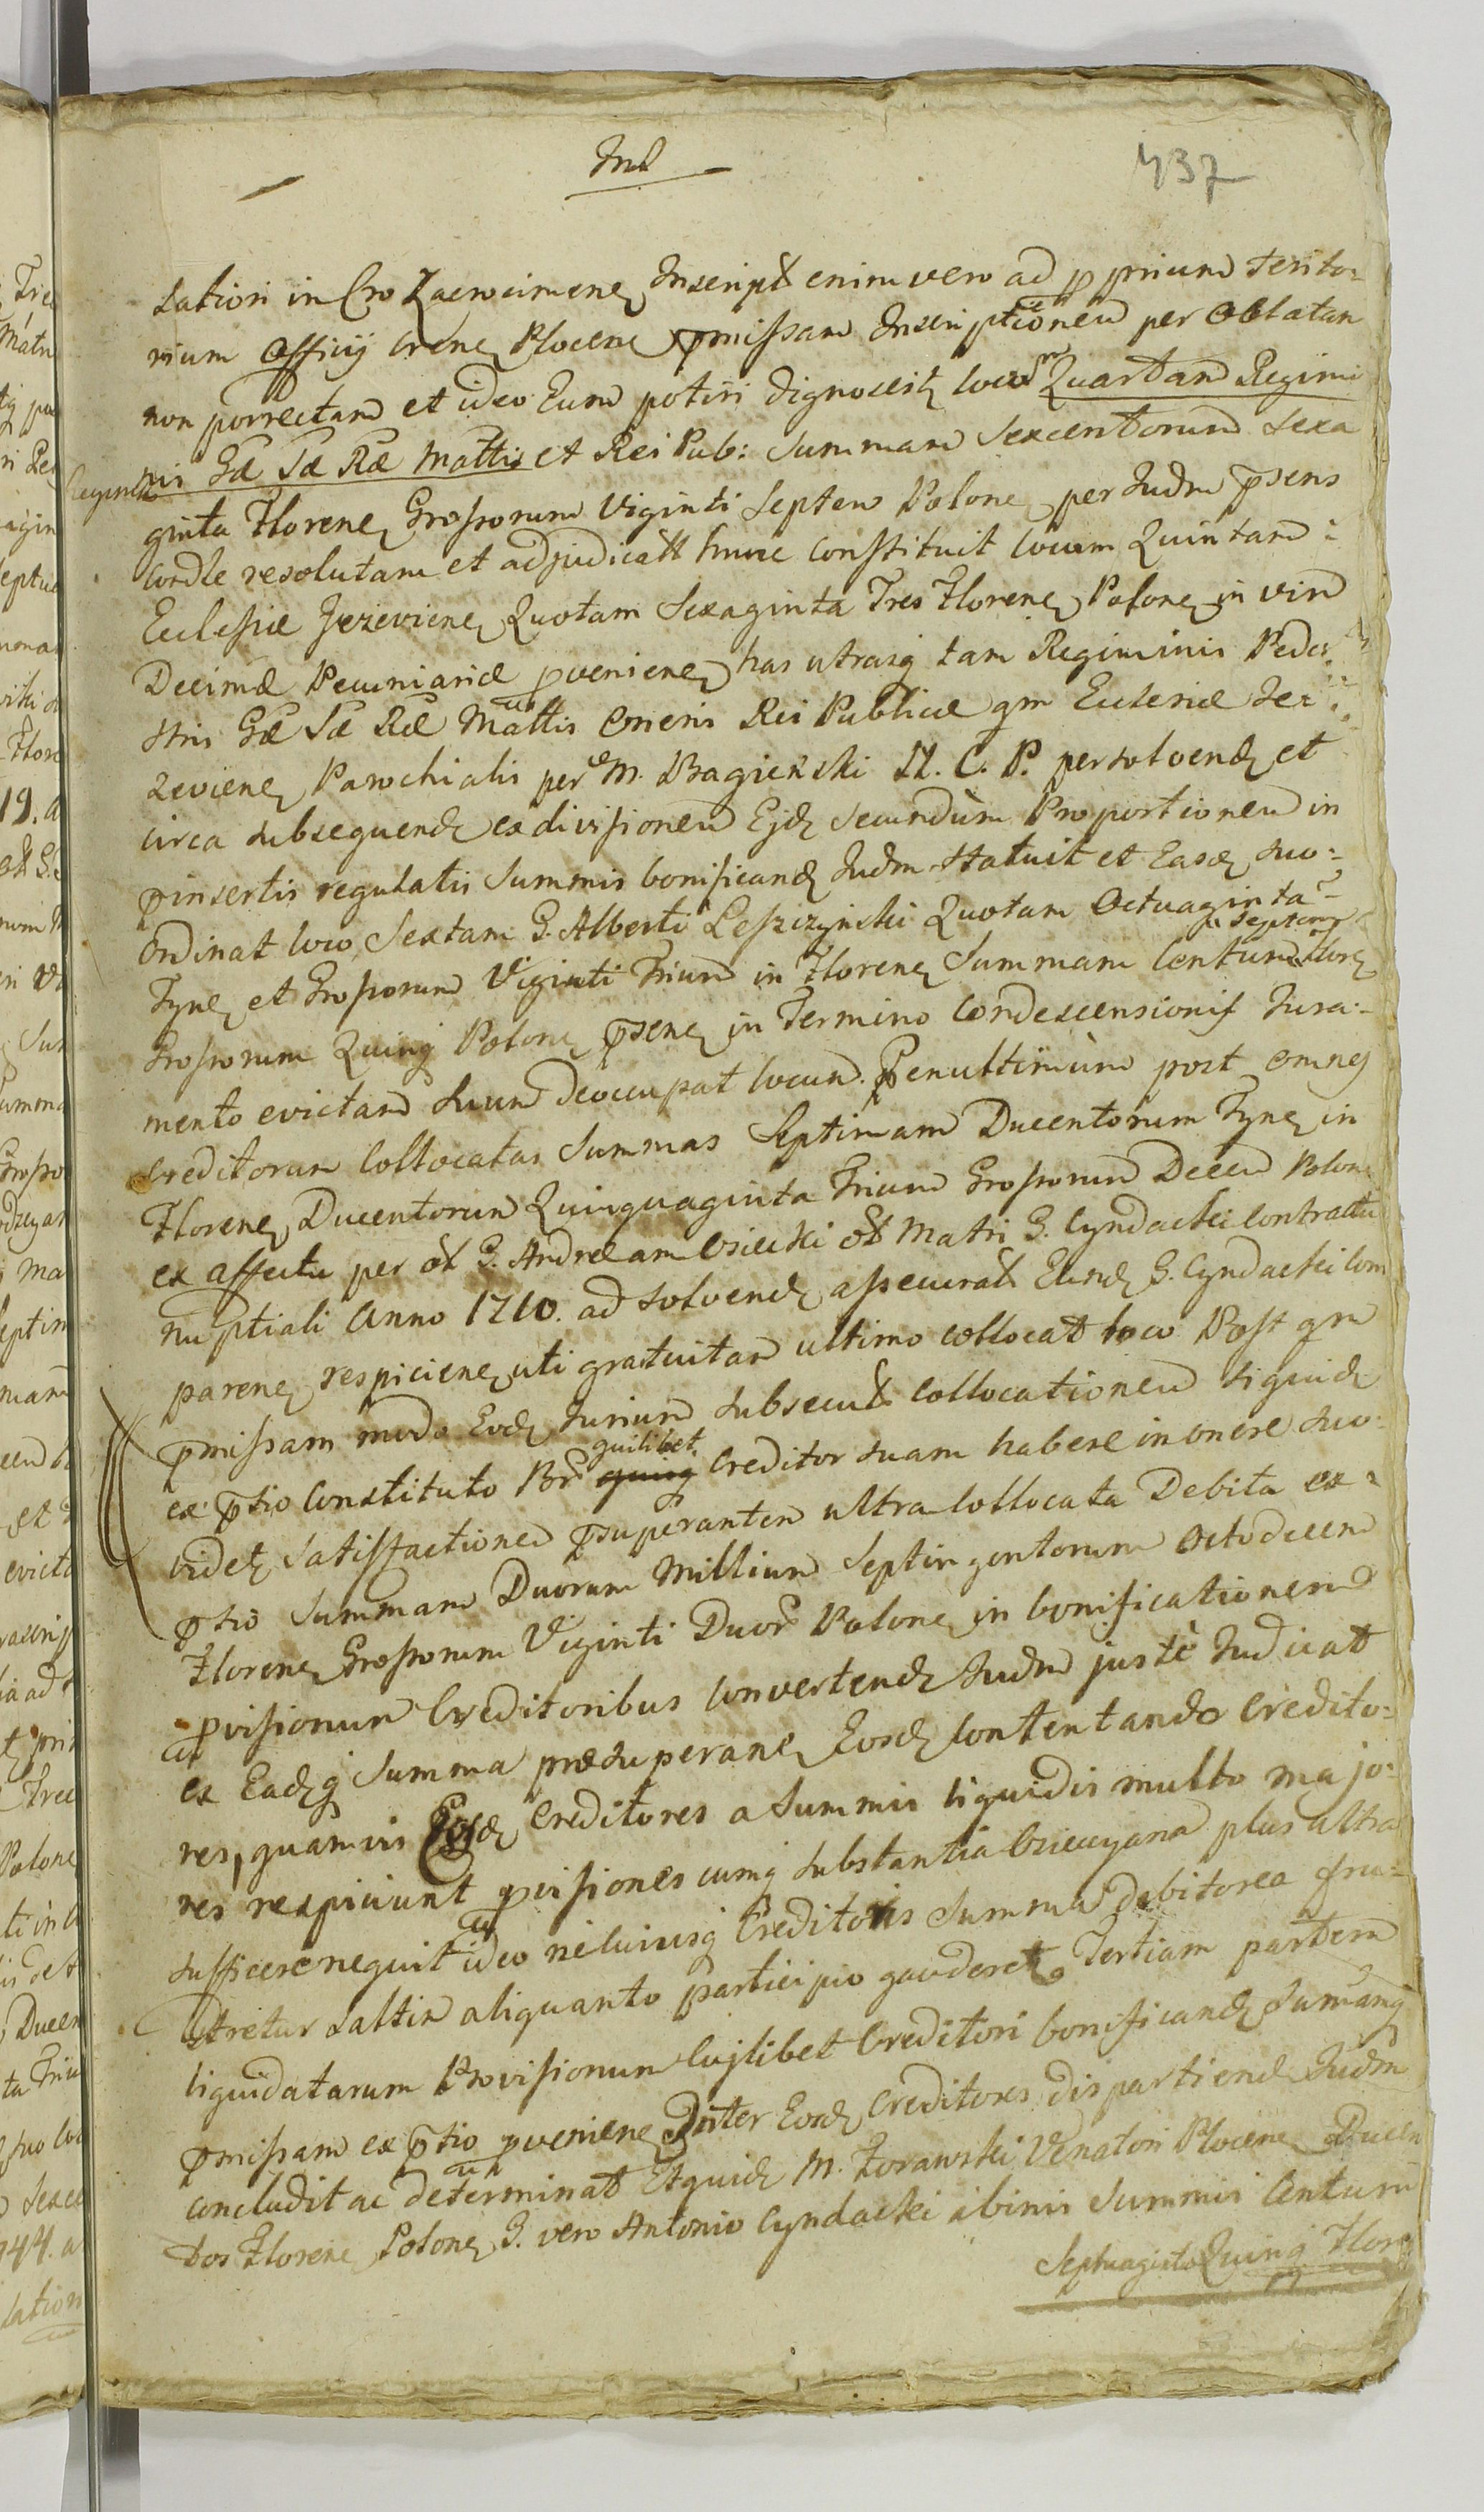 437
sationi in Cro Zacrocimenę Inscript enim vero ad pprium territo:
rium Officij Crenę Plocenę pmissam Inscriptionem per Oblatam
non porrectam et ideo Eum potiri dignoscitę loco Quartam Regimi
nis Sæ Sæ Ræ Mattis et Rei Pub: Summam Sexcentorum Sexa
ginta Florenę Grossorum Viginti Septem Polonę per Judm psens
Condle resolutam et adjudicatt hunc constituit locum Quintam:
Ecclesiæ Jezevienę Quotam Sexaginta Tres Florenę Polonę in vim
Decimæ Pecuniariæ pvenienę has utrasq tam Regiminis Pede:
stris Sæ Sæ Ræ Mattis oneris Rei Publicæ qm Eclesiæ Je:
zevienę Parochialis per M. Bagieński II. C. P. persolvendę et
circa subsequendę exdivisionem Ejdę secundùm Proportionem in
pinsertis regulatis Summis bonificandę Judm statuit et Easdę suo:
Ordinat loco, Sextam G. Alberti Leszczynski Quotam Octuaginta
Tynę et Grossorum Viginti Trium in Florenę Summam Centum Septem Florę
Grossorum Quinq Polonę psenę in Termino Condescensionis Jura:
mento evictam Suum deoccupat locum. Penultimùm post omnes
Creditorum Collocatas Summas Septimam Ducentorum Tynę in
Florenę Ducentorum Quinquaginta Trium Grossorum Decem Polonę
ex affectu per ol G. Andream Osiecki ol Matri G. Cyndacki Contractu
nuptiali Anno 1710. ad solvendę assecurat Eundę G. Cyndacki Com
parenę respicienę uti gratuitam ultimo collocat loco Post qm
pmissam modo Eodę Jurium subsecut Collocationem siquidę
ex ptio Constituto Br quilibet Creditor suam habere in onere suo:
videtę Satisfactionem psuperantem ultra Collocata Debita ex:
ptio Summam Duorum Millium Septingentorum Octodecem
Florenę Grossorum Viginti Duor Polonę in bonificationem
pvisionum Creditoribus Convertendę Judm justè Judicat
ex Eadęq Summa præsuperanę Eosdę Contentando Credito:
res, quamvis Eosdę Creditores a Summis liquidis multo majo:
res respiciunt pvisiones cumq substantia Osiecyana plus ultra
sufficere nequit ideo ne cuiusq Creditoris Summa debitorea fru:
stretur saltim aliquanto participio gauderet Tertiam partem
liquidatarum Provisionum Cujlibet Creditori bonificandę Sumamq
pmissam ex ptio pvenienę Inter Eosdę Creditores dispartiendę Judm
concludit ac determinat Etquidę M. Zorawski Venatori Plocenę Ducen
tos Florenę Polonę G. vero Antonio Cyndacki a binis Summis Centum
Septuaginta Quinq Florę